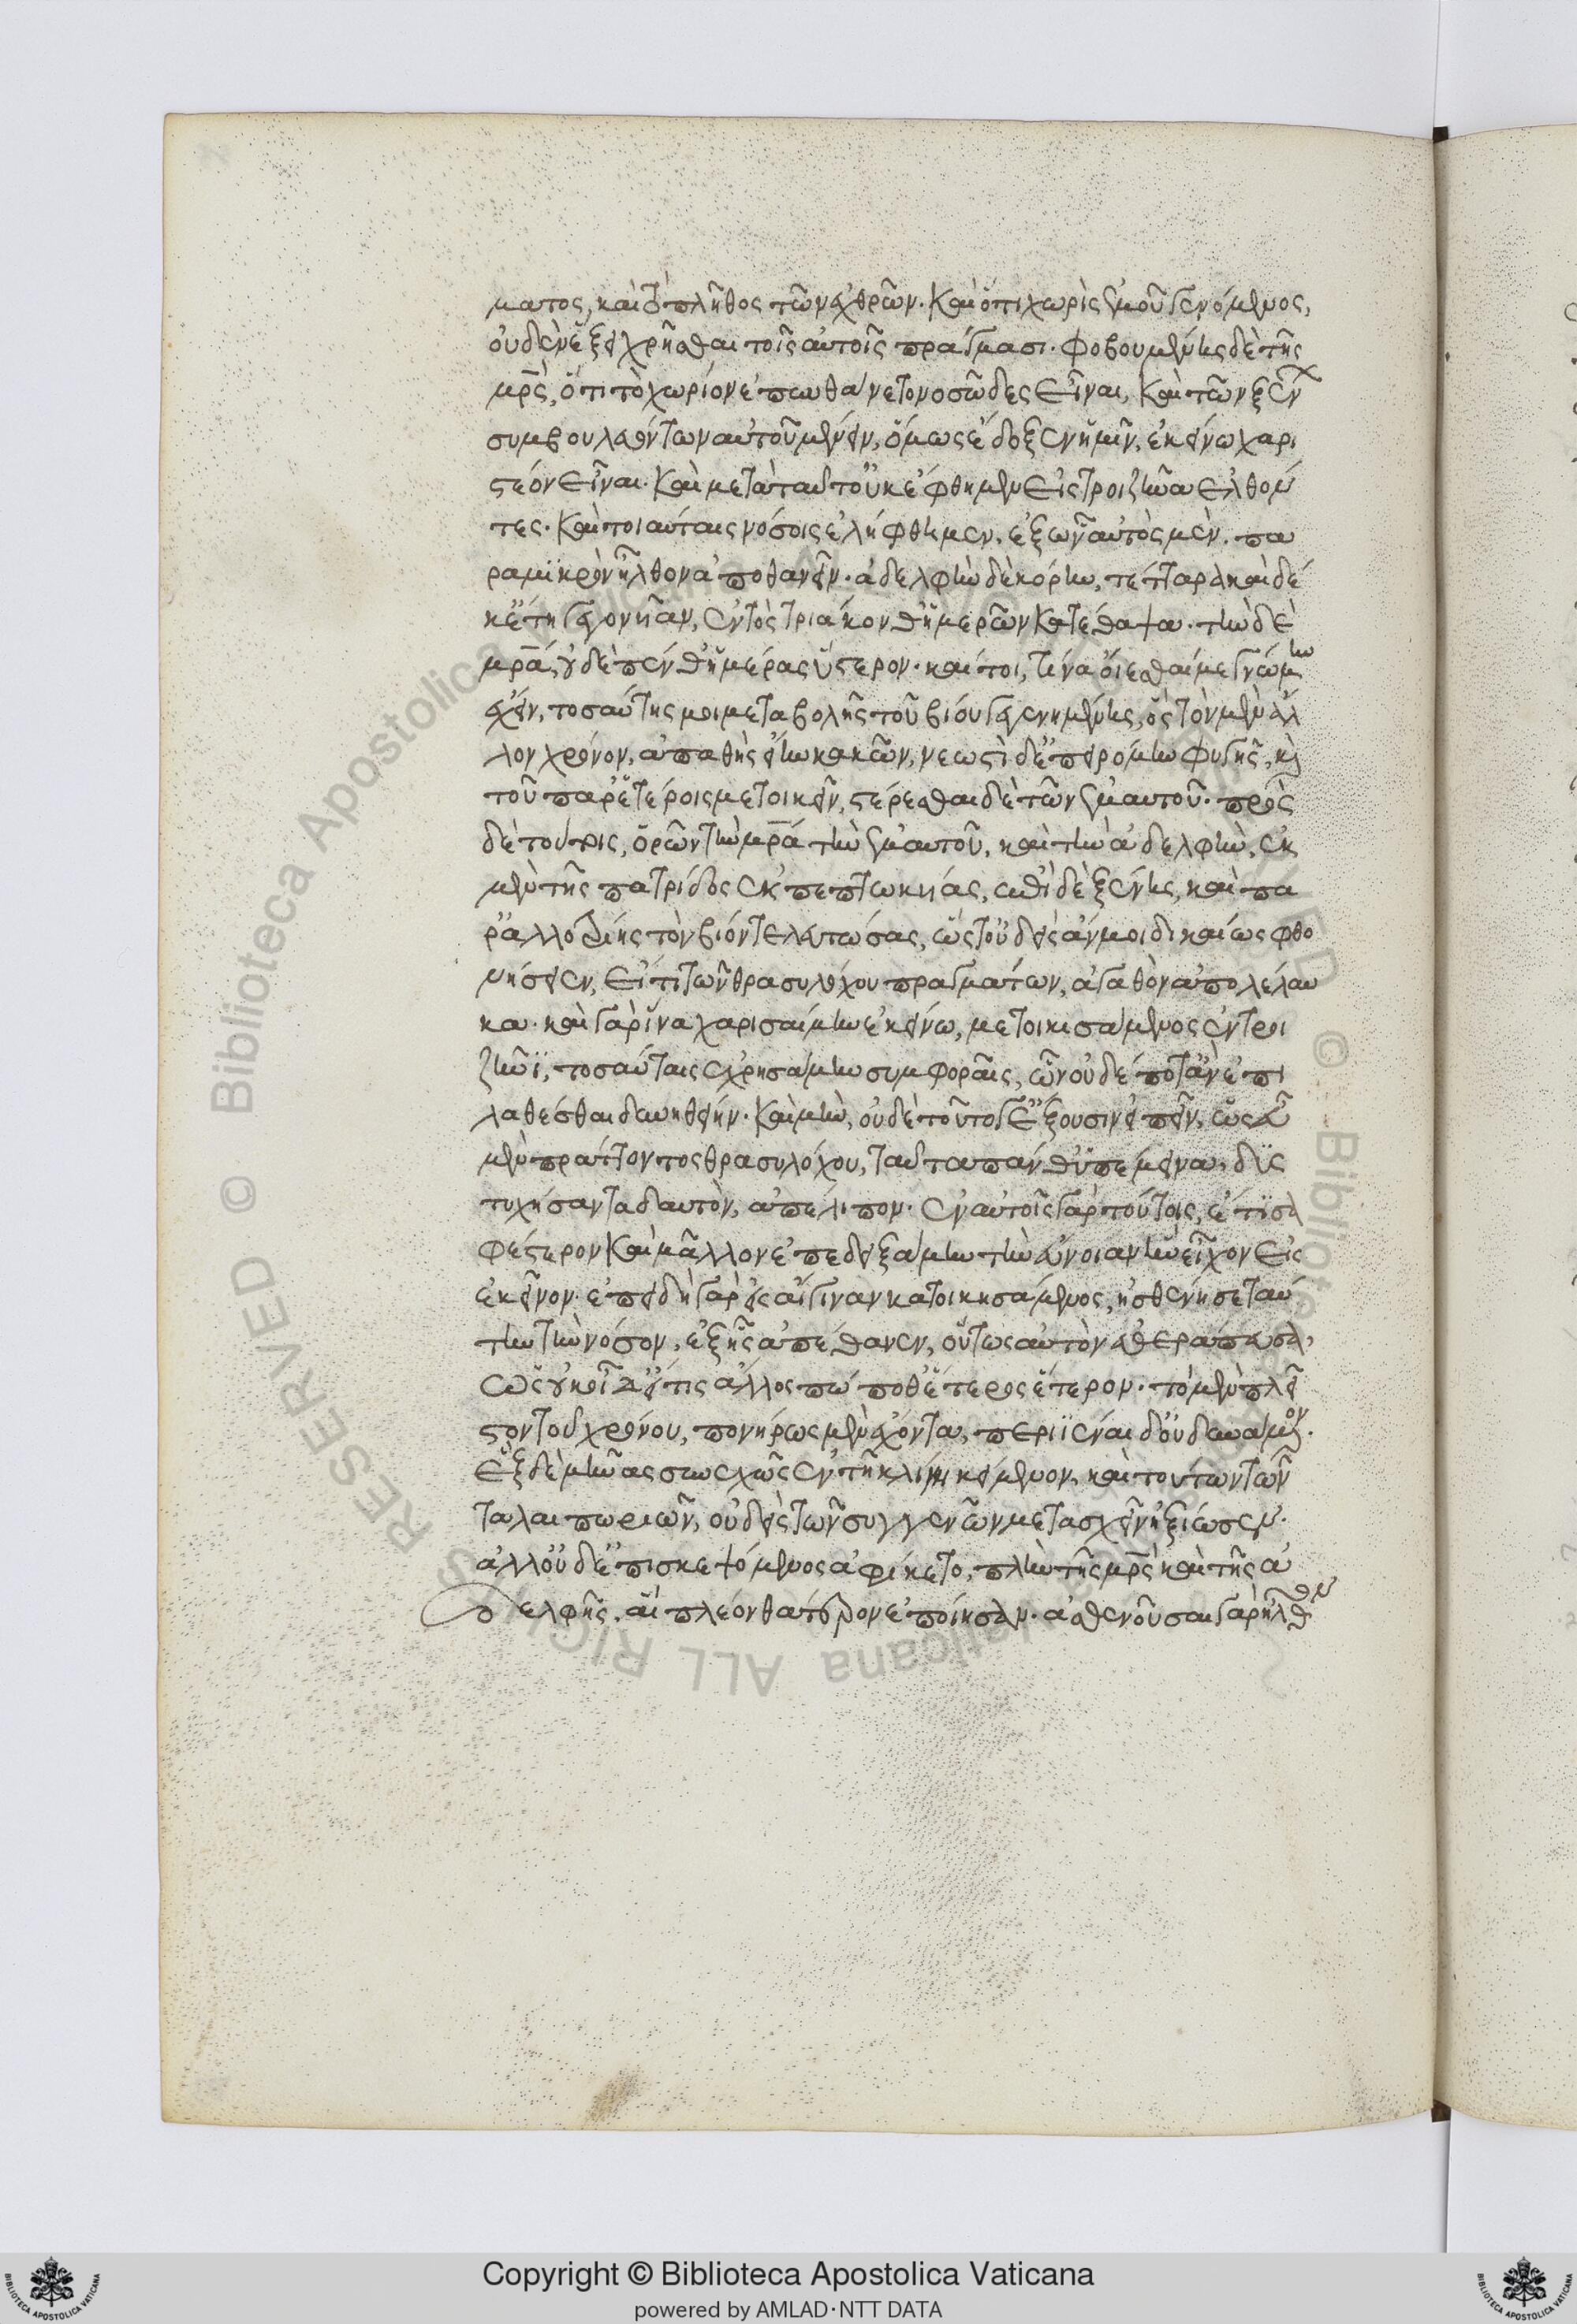 ματος, καὶ τὸ πλῆθος τῶν ἐχθρῶν. καὶ ὅτι χωρὶς ἐμοῦ γενόμενος,
οὐδὲν ἕξει χρῆσθαι τοῖς αὐτοῖς πράγμασι. φοβουμένης δὲ τῆς
μρς, ὅτι τὸ χωρίον ἐπυνθάνετο νοσῶδες εἶναι, καὶ τῶν ξέν
συμβουλευόντων αὐτοῦ μένειν, ὅμως ἔδοξεν ἡμῖν, ἐκείνω χαρι
στέον εἶναι. καὶ μετὰ ταῦτ' οὐκ ἔφθημεν εἰς τροιζῆνα ἐλθόν
τες. καὶ τοιαύταις νόσοις ἐλήφθημεν, ἐξ ὧν αὐτὸς μὲν, πα
ρὰ μικρὸν ἦλθον ἀποθανεῖν. ἀδελφὴν δὲ κόρην, τετταρακαιδε
κέτη γεγονυῖαν, ἐντὸς τριάκονθ' ἡμερῶν κατέθαψα. τὴν δὲ
μρα, οὐδὲ πένθ' ἡμέρας ὕστερον. καίτοι, τίνα οἴεσθαί με γνώμην
ἔχειν, τοσαύτης μοι μεταβολῆς τοῦ βίου γεγενημένης, ὃς τὸν μὲν ἄλ
λον χρόνον, ἀπαθὴς ἦν κακῶν, νεωστὶ δ' ἐπειρώμην φυγῆς, καὶ
τοῦ παρ' ἑτέροις μετοικεῖν, στέρεσθαι δὲ τῶν ἐμαυτοῦ. πρὸς
δὲ τούτοις, ὁρῶν τὴν μρα τὴν ἐμαυτοῦ, καὶ τὴν ἀδελφὴν, ἐκ
μὲν τῆς πατρίδος ἐκπεπτωκυίας, ἐπὶ δὲ ξένης, καὶ πα
ρ' ἀλλοτρίοις τὸν βίον τελευτώσας, ὥστ' οὐδεὶς ἄν μοι δικαίως φθο
νήσειεν, εἴ τι τῶν θρασυλόχου πραγμάτων, ἀγαθὸν ἀπολέλαυ
κα. καὶ γὰρ ἵνα χαρισαίμην ἐκείνω, μετοικισάμενος ἐν τροι
ζῆνι, τοσαύταις ἐχρησάμην συμφοραῖς, ὧν οὐδέποτ' ἂν ἐπι
λαθέσθαι δυνηθείην. καὶ μὴν, οὐδὲ τοῦτό γ' ἕξουσιν εἰπεῖν, ὡς εὖ
μὲν πράττοντος θρασυλόχου, ταῦτα πάνθ' ὑπέμεινα, δυς
τυχήσαντα δ' αὐτὸν, ἀπέλιπον. ἐν αὐτοῖς γὰρ τούτοις, ἔτι σα
φέστερον καὶ μᾶλλον ἐπεδειξάμην τὴν εὔνοιαν ἣν εἶχον εἰς
ἐκεῖνον. ἐπειδὴ γὰρ εἰς αἴγιναν κατοικησάμενος, ἠσθένησε ταύ
την τὴν νόσον, ἐξ ἧς ἀπέθανεν, οὕτως αὐτὸν ἐθεράπευσα,
ὡς οὐκ οἶδ' εἴ τις ἄλλος πώποθ' ἕτερος ἕτερον. τὸ μὲν πλεῖ
στον τοῦ χρόνου, πονήρως μὲν ἔχοντα, περιϊέναι δ' οὐ δυνάμενον.
ἓξ δὲ μῆνας συνεχῶς ἐν τῆ κλίνη κείμενον, καὶ τούτων τῶν
ταλαιπωριῶν, οὐδεὶς τῶν συγγενῶν μετασχεῖν ἠξίωσεν.
ἀλλ' οὐδ' ἐπισκεψόμενος ἀφίκετο, πλὴν τῆς μρς καὶ τῆς ἀ
δελφῆς, αἳ πλέον θάτερον ἐποίησαν. ἀσθενοῦσαι γὰρ ἦλθον
Copyright © Biblioteca Apostolica Vaticana
powered by AMLAD·NTT DATA